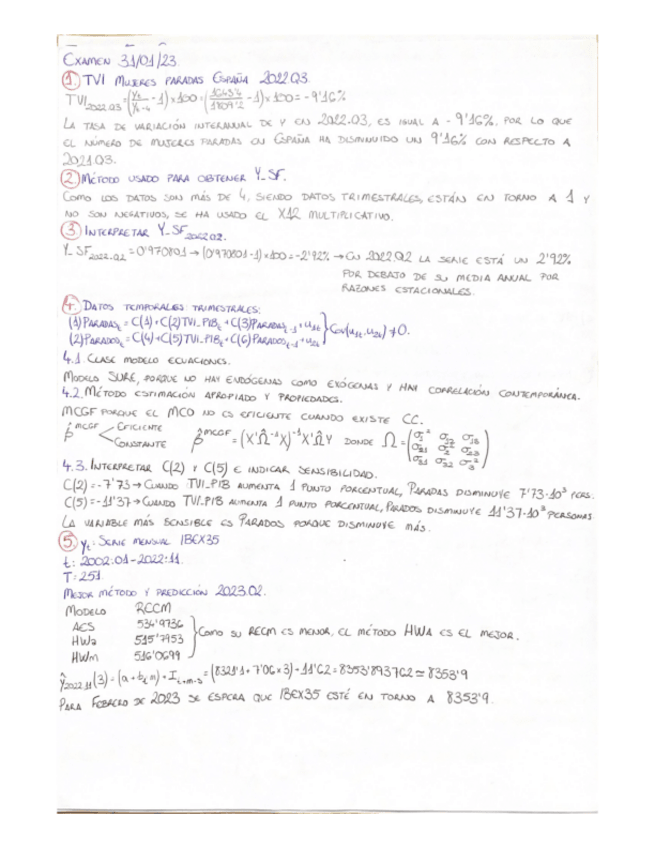 EXAMEN 31/01/23
1. TVI MUJERES PARADAS ESPAÑA 2022Q3.
TVI2022.Q3 = (Yt/Yt-4 - 1) × 100 = (1643'4/1809'2 - 1) × 100 = -9'16%
LA TASA DE VARIACIÓN INTERANUAL DE Y EN 2022.Q3, ES IGUAL A -9'16%, POR LO QUE
EL NÚMERO DE MUJERES PARADAS EN ESPAÑA HA DISMINUIDO UN 9'16% CON RESPECTO A
2021Q3.
2. MÉTODO USADO PARA OBTENER Y_SF.
COMO LOS DATOS SON MÁS DE 4, SIENDO DATOS TRIMESTRALES, ESTÁN EN TORNO A 1 Y
NO SON NEGATIVOS, SE HA USADO EL X12 MULTIPLICATIVO.
3. INTERPRETAR Y_SF2022.Q2.
Y_SF2022.Q2 = 0'970801 → (0'970801-1)×100 = -2'92% → EN 2022.Q2 LA SERIE ESTÁ UN 2'92%
POR DEBAJO DE SU MEDIA ANUAL POR
RAZONES ESTACIONALES.
4. DATOS TEMPORALES TRIMESTRALES:
(1) PARADASt = C(1)+C(2)TVI_PIBt + C(3)PARADASt-1 + u1t
(2) PARADOSt = C(4)+C(5)TVI_PIBt + C(6)PARADOSt-1 + u2t } Cov(u1t, u2t) ≠ 0.
4.1. CLASE MODELO ECUACIONES.
MODELO SURE, PORQUE NO HAY ENDÓGENAS COMO EXÓGENAS Y HAY CORRELACIÓN CONTEMPORÁNEA.
4.2. MÉTODO ESTIMACIÓN APROPIADO Y PROPIEDADES.
MCGF PORQUE EL MCO NO ES EFICIENTE CUANDO EXISTE CC.
β̂ MCGF EFICIENTE
CONSTANTE β̂ MCGF = (X'Ω̂⁻¹X)⁻¹X'Ω̂Y DONDE Ω =
4.3. INTERPRETAR C(2) Y C(5) E INDICAR SENSIBILIDAD.
C(2) = -7'73 → CUANDO TVI_PIB AUMENTA 1 PUNTO PORCENTUAL, PARADAS DISMINUYE 7'73·10³ PERS.
C(5) = -11'37 → CUANDO TVI_PIB AUMENTA 1 PUNTO PORCENTUAL, PARADOS DISMINUYE 11'37·10³ PERSONAS.
LA VARIABLE MÁS SENSIBLE ES PARADOS PORQUE DISMINUYE MÁS.
5. yt: SERIE MENSUAL IBEX35
t: 2002:01-2022:11.
T = 251
MEJOR MÉTODO Y PREDICCIÓN 2023.02.
MODELO RECM
AES 534'9736
HWa 515'7953 } COMO SU RECM ES MENOR, EL MÉTODO HWA ES EL MEJOR.
HWm 516'0699
ŷ2022.11(3) = (a + bt m) + It+m-s = (8321'1 + 7'06×3) + 11'62 = 8353'893762 ≃ 8353'9
PARA FEBRERO DE 2023 SE ESPERA QUE IBEX35 ESTÉ EN TORNO A 8353'9.